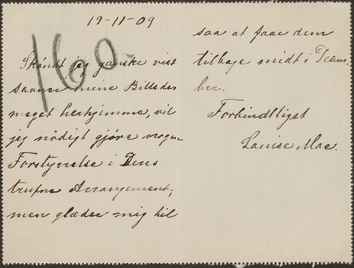 19-11-09
160
Skøndt jeg ganske vist
savner mine Billeder
meget herhjemme, vil
jeg nødigt gjøre nogen
Forstyrrelse i Deres
trufne Arrangement,
men glæder mig til
saa at faae dem
tilbage midt i Decem-
ber.
Forbindtligst
Louise